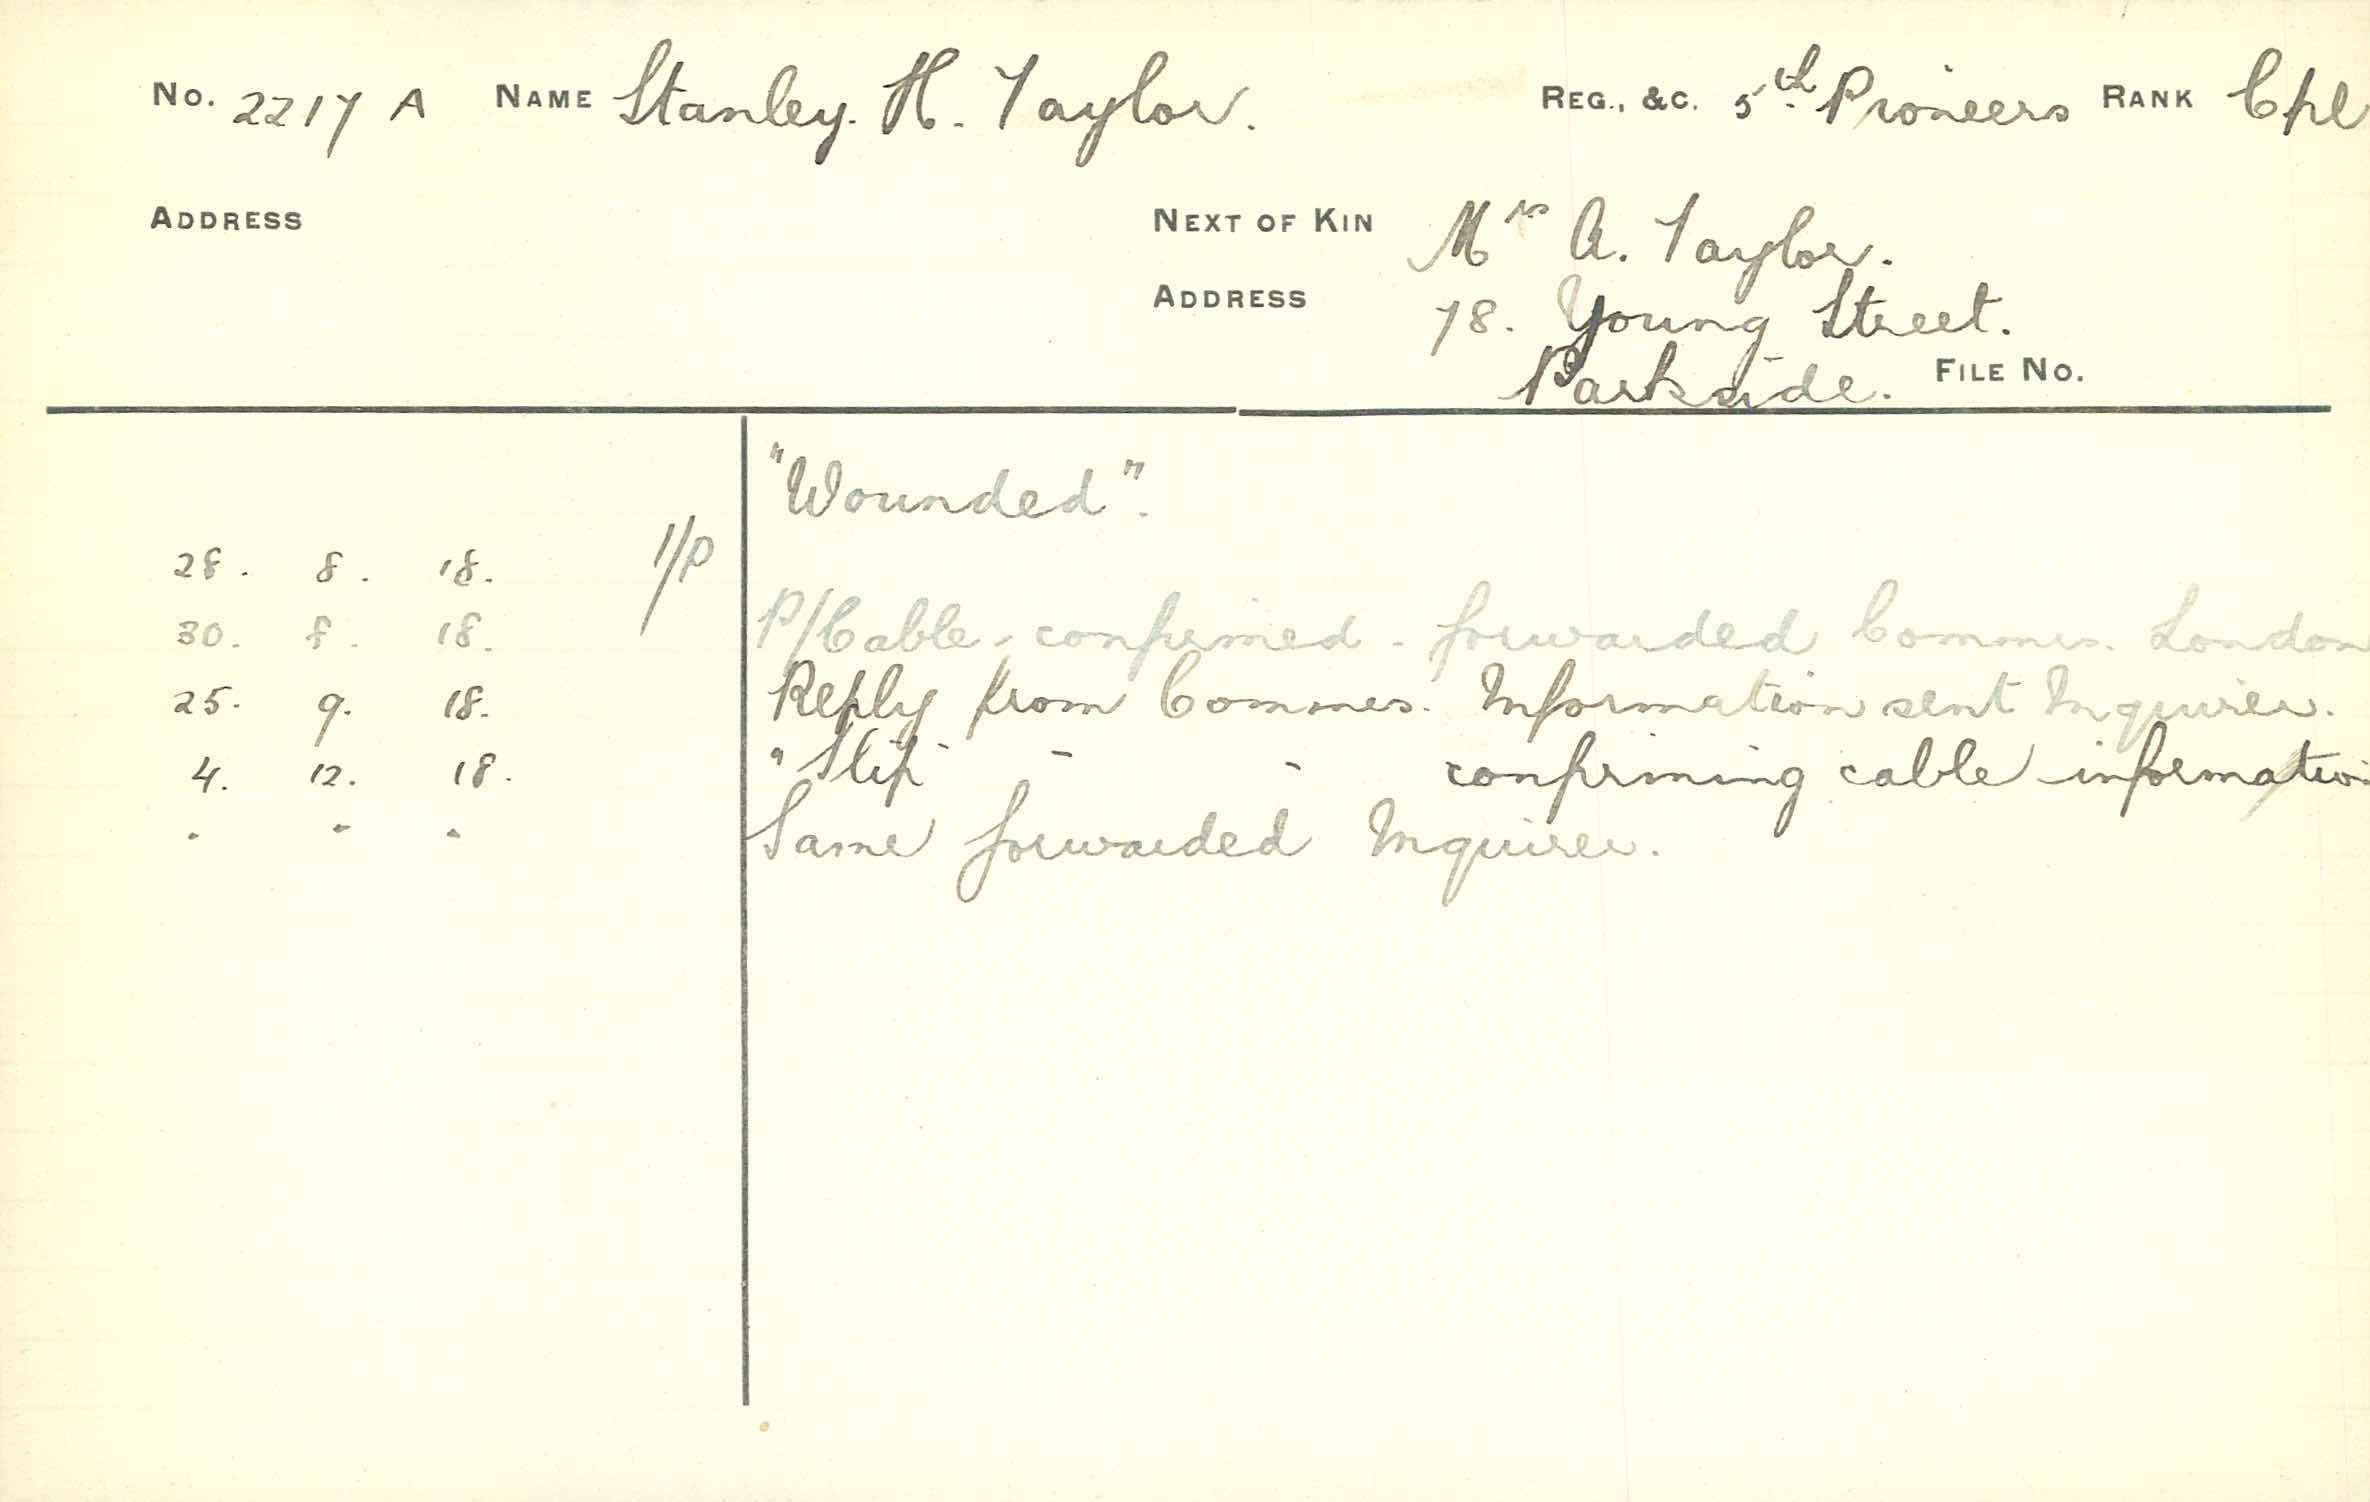 No. 2217 A NAME Stanley. H. Taylor. REG., &C. 5th Pioneers RANK Cpl
ADDRESS NEXT OF KIN Mrs A. Taylor.
ADDRESS 78. Young Street.
Parkside. FILE No.
"Wounded".
28. 8. 18. 1/P
30. 8. 18. P/Cable - confirmed - forwarded Commrs. London
25. 9. 18. Reply from Commrs. Information sent Inquirer.
4. 12. 18. "Slip" - - confirming cable information
" " " Same forwarded Inquirer.